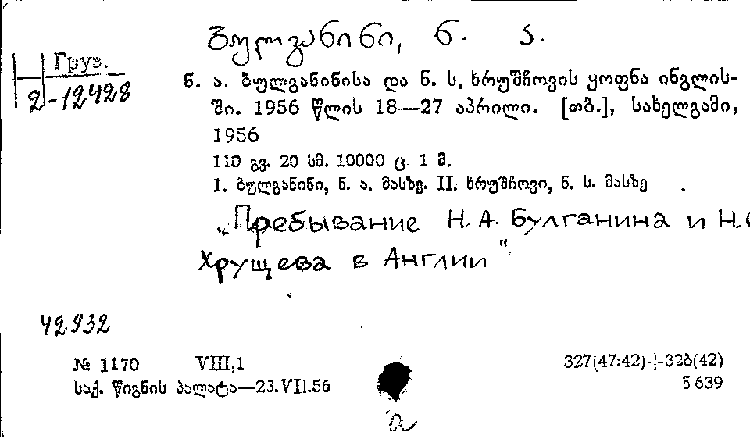 ბულგანინი, ნ. ა.
Груз.
2-12428
ნ. ა. ბულგანინისა და ნ. ს. ხრუშჩოვის ყოფნა ინგლის-
ში. 1956 წლის 18—27 აპრილი. [თბ.], სახელგამი,
1956
110 გვ. 20 სმ. 10000 ც. 1 მ.
I. ბულგანინი, ნ. ა. მასზე. II. ხრუშჩოვი, ნ. ს. მასზე
„Пребывание Н.А. Булганина и Н.С
Хрущева в Англии"
42932
№ 1170 VIII,1 327(47:42)+32б(42)
საქ. წიგნის პალატა—23.VII.56 5639